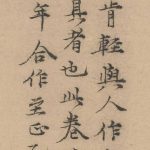 肯輕與人作
具者也此卷
年合作至正